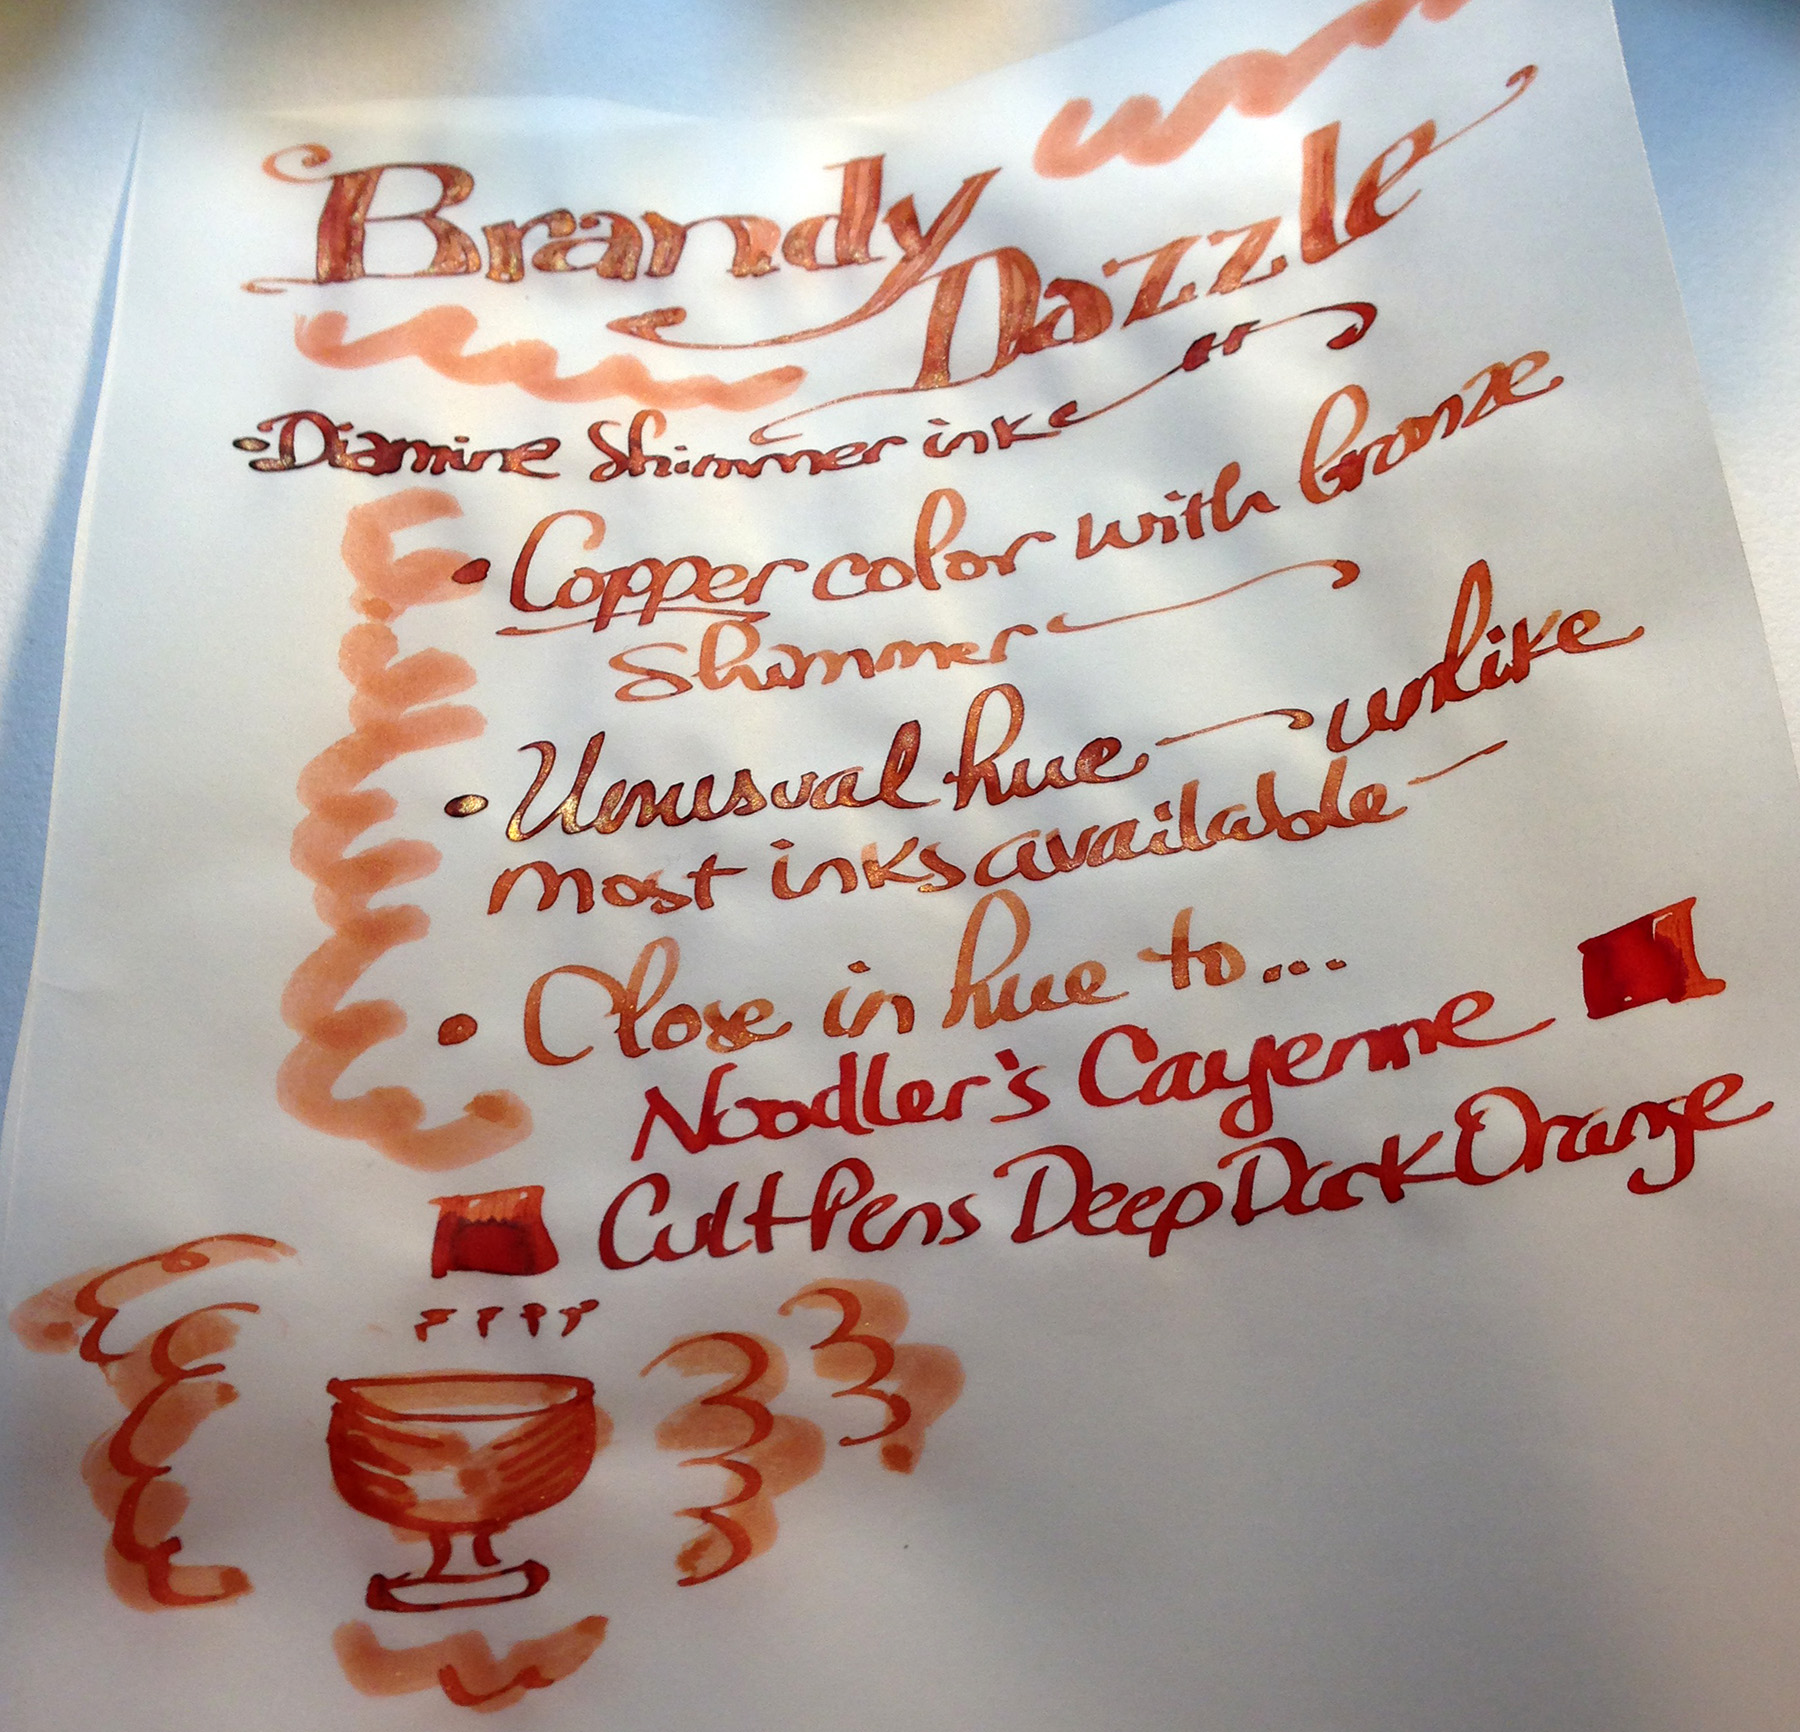 Brandy
Dazzle
• Diamine Shimmer inks
• Copper color with bronze
Shimmer
• Unusual hue — unlike
most inks available —
• Close in hue to...
Noodler's Cayenne
Cult Pens Deep Dark Orange